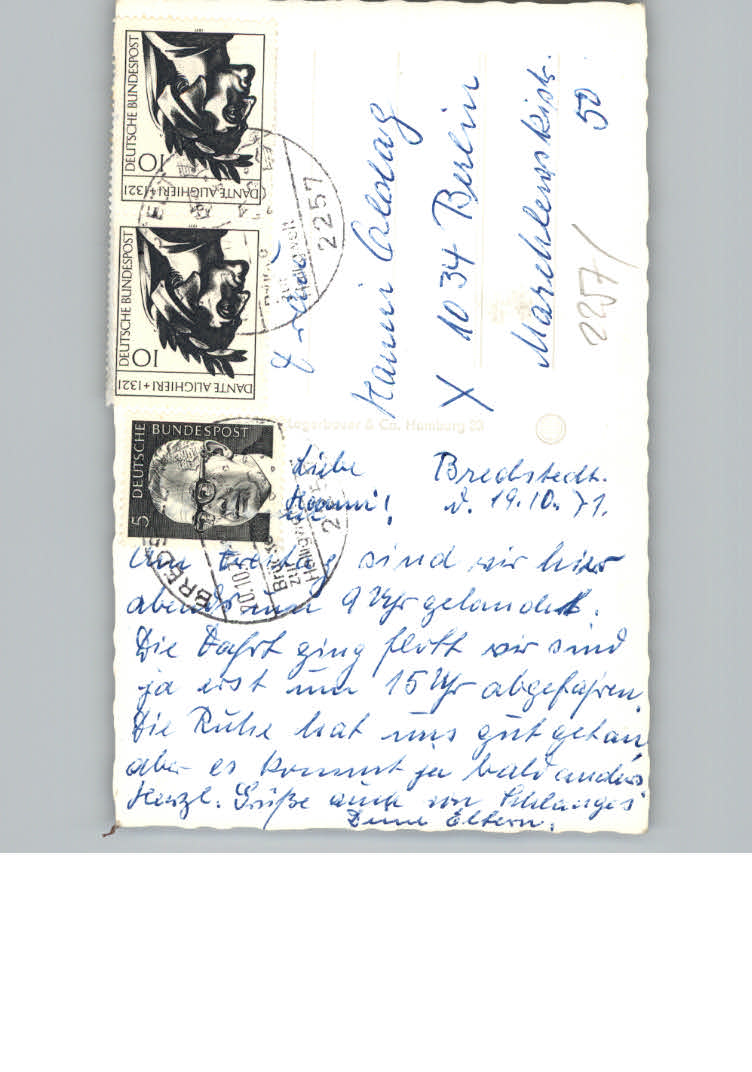 DEUTSCHE BUNDESPOST
10
DANTE ALIGHIERI + 1321
DEUTSCHE BUNDESPOST
10
DANTE ALIGHIERI + 1321
2257
DEUTSCHE BUNDESPOST
5
Hanni
X 1034 Berlin
Marchlewskistr.
50
2257/
& Co. Hamburg
Liebe
Hanni!
Bredstedt.
d. 19.10.71.
Am Freitag sind wir hier
abends um 9 Uhr gelandet.
Die Fahrt ging flott wir sind
ja erst um 15 Uhr abgefahren.
Die Ruhe hat uns gut getan
aber es kommt ja bald anders
Herzl. Grüße auch von
Deine Eltern.